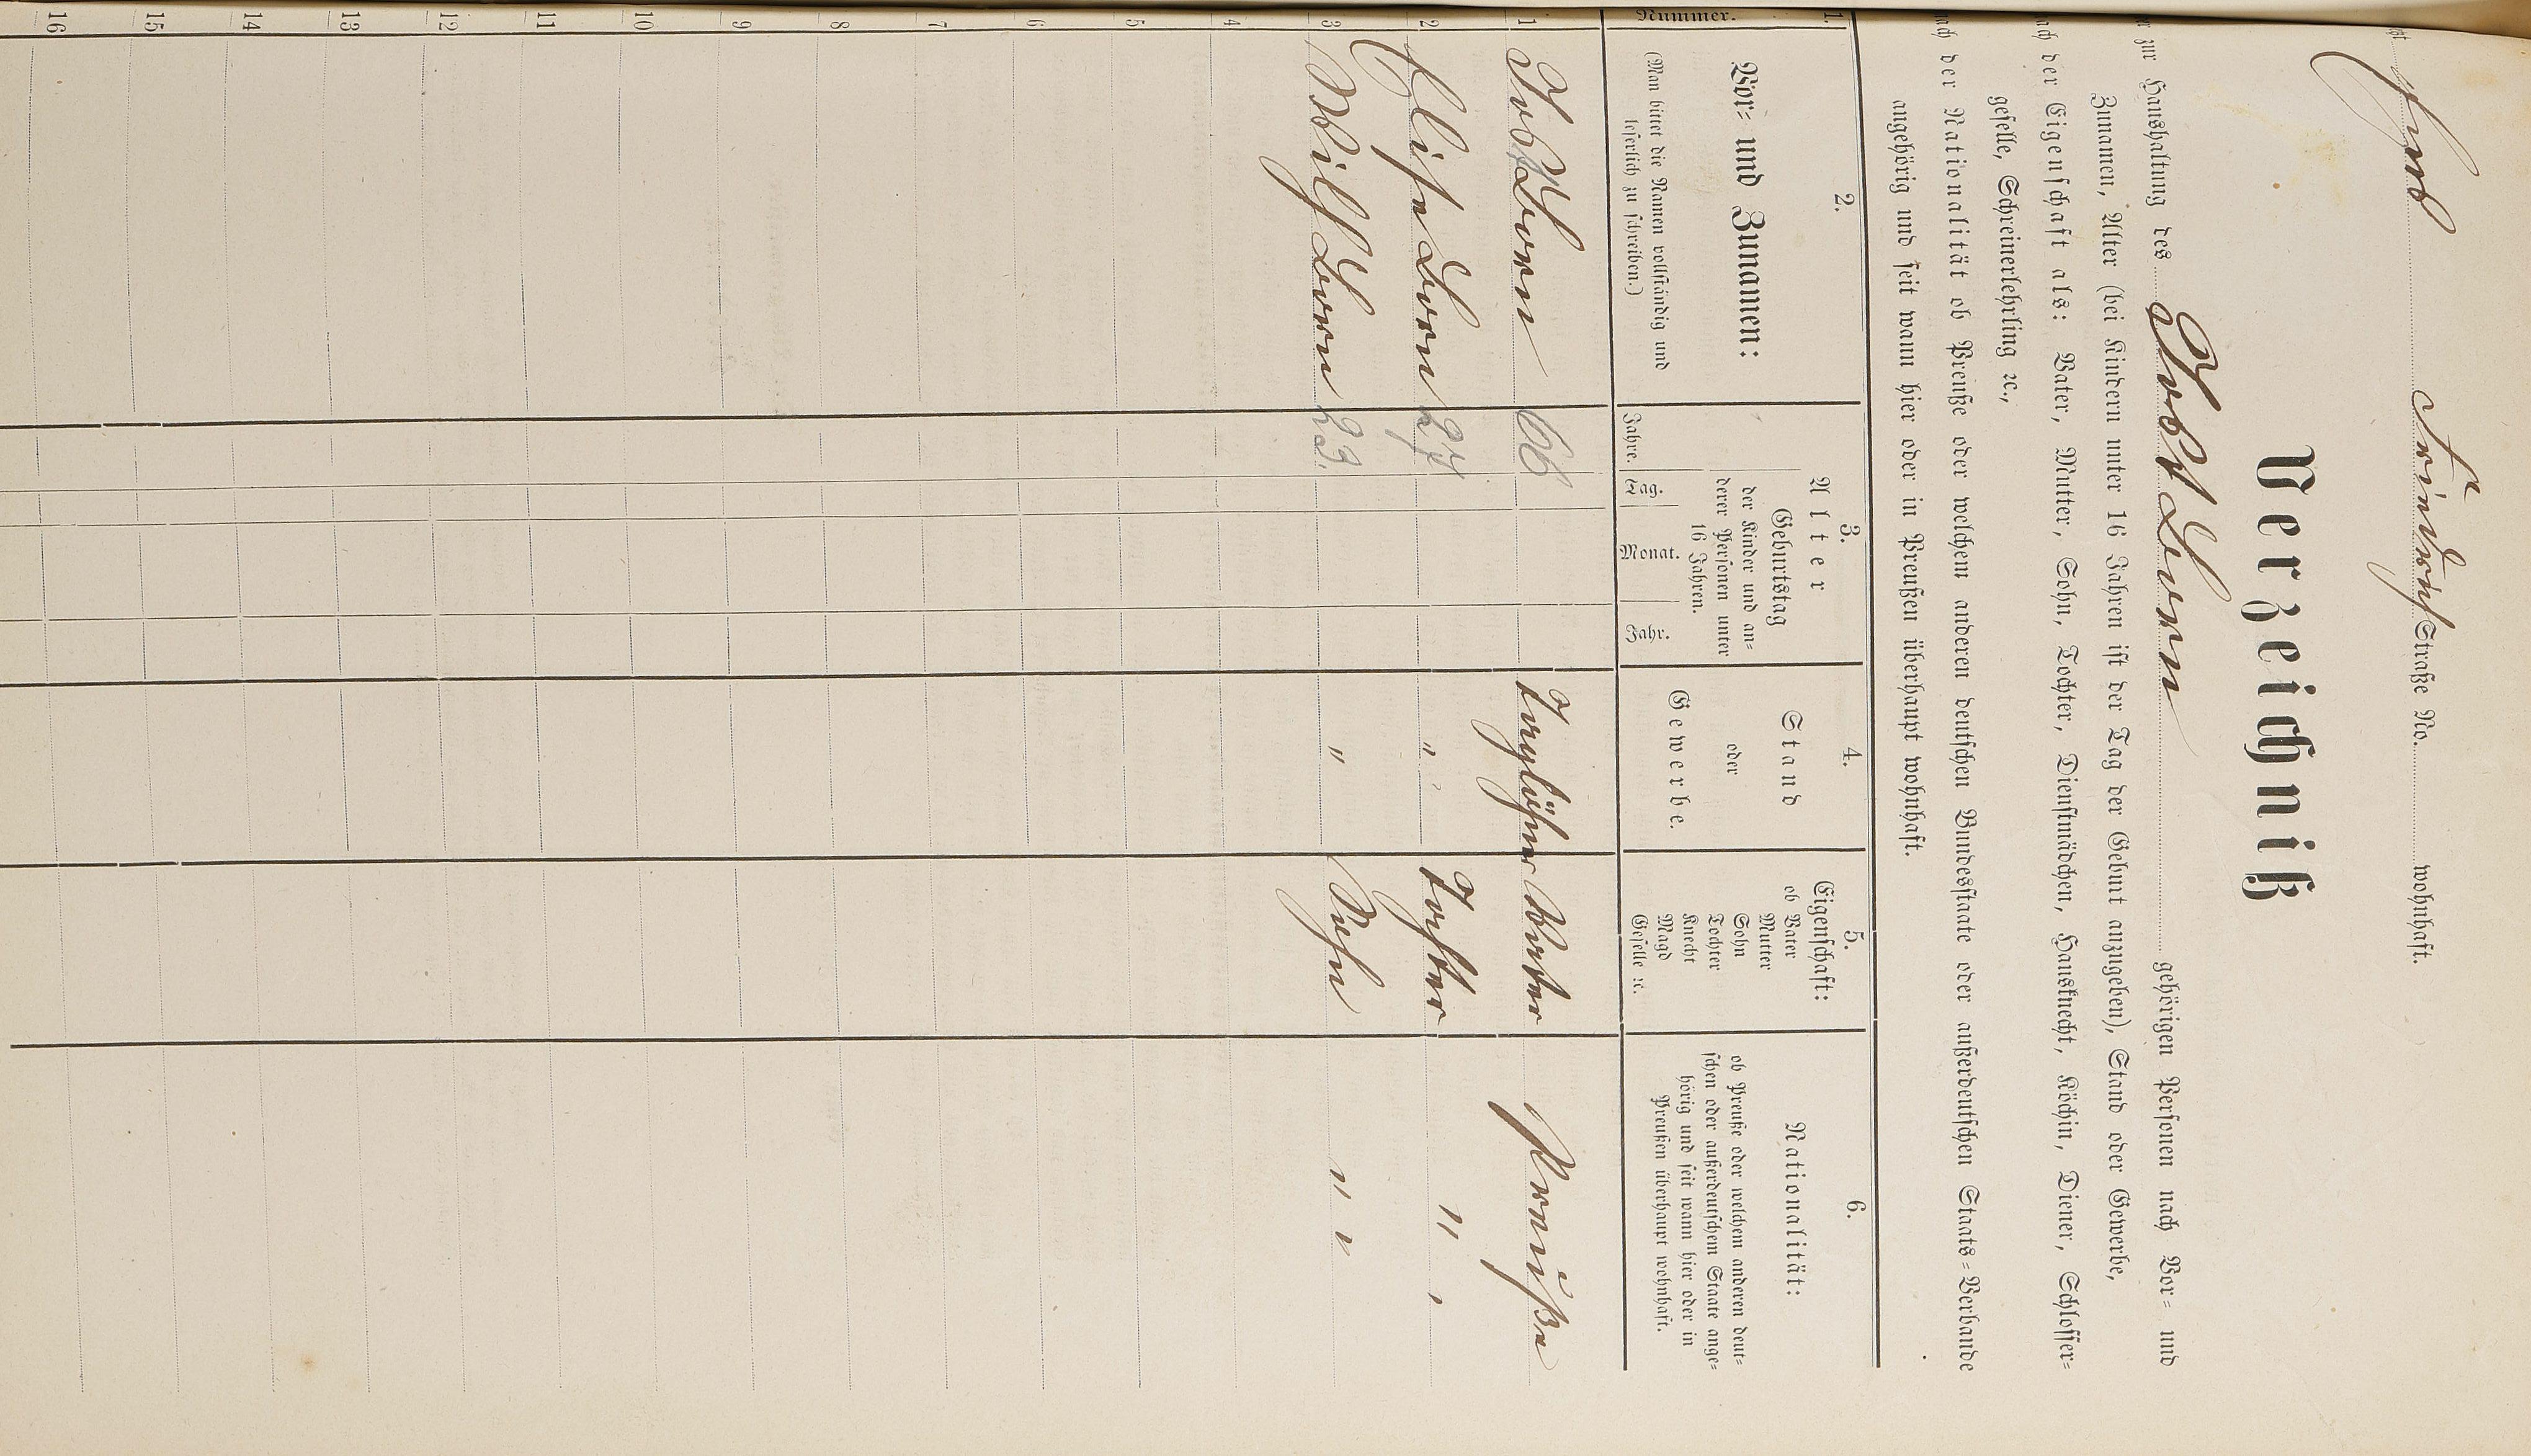 Ems Friedrich Straße No. wohnhaft.
Verzeichniß
er zur Haushaltung des Jost Born gehörigen Personen nach Vor= und
Zunamen, Alter (bei Kindern unter 16 Jahren ist der Tag der Geburt anzugeben), Stand oder Gewerbe,
ach der Eigenschaft als: Vater, Mutter, Sohn, Tochter, Dienstmädchen, Hausknecht, Köchin, Diener, Schlosser=
geselle, Schreinerlehrling ꝛc.,
ach der Nationalität ob Preuße oder welchem anderen deutschen Bundesstaate oder außerdeutschen Staats=Verbande
angehörig und seit wann hier oder in Preußen überhaupt wohnhaft.
1. 2. 3. 4. 5. 6.
Nummer.
Vor= und Zunamen:
(Man bittet die Namen vollständig und
leserlich zu schreiben.)
Alter
Geburtstag
der Kinder und an=
derer Personen unter
16 Jahren.
Jahre. Tag. Monat. Jahr.
Stand
oder
Gewerbe.
Eigenschaft:
ob Vater
Mutter
Sohn
Tochter
Knecht
Magd
Geselle ꝛc.
Nationalität:
ob Preuße oder welchem anderen deut=
schen oder außerdeutschem Staate ange=
hörig und seit wann hier oder in
Preußen überhaupt wohnhaft.
1 Jost Born 66 Taglöhner Vater Preuße
2 Elise Born 27 " Tochter " "
3 Wilh Born 23. " Sohn " "
4
5
6
7
8
9
10
11
12
13
14
15
16